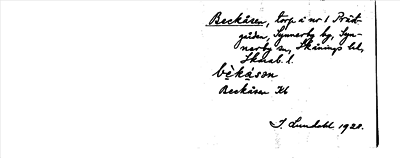 Beckåsen, torp å nr 1 Präst-
gården, Synnerby by, Syn-
nerby sn, Skånings hd,
Skarab. l.
bèkåsen
Beckåsen Kb
I. Lundahl 1928.